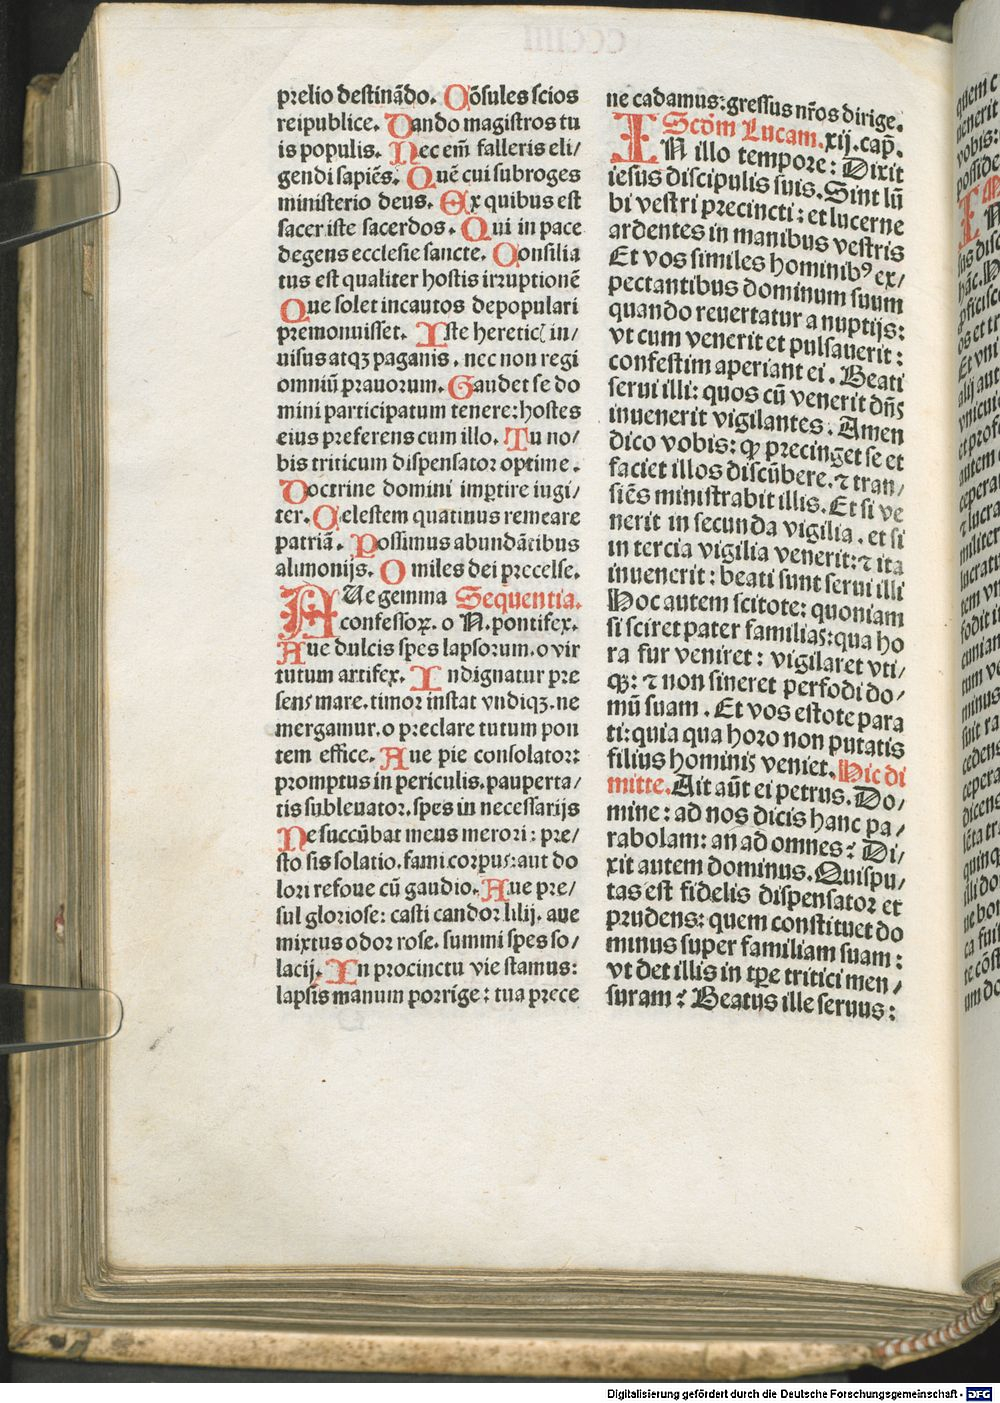 prelio destinādo. Cōsules scios
reipublice. Dando magistros tu
is populis. Nec em̄ falleris eli/
gendi sapiēs. Quē cui subroges
ministerio deus. Ex quibus est
sacer iste sacerdos. Qui in pace
degens ecclesie sancte. Consilia
tus est qualiter hostis irruptionē
Que solet incautos depopulari
premonuisset. Iste heretic in/
uisus atqꝫ paganis. nec non regi
omniū prauorum. Gaudet se do
mini participatum tenere: hostes
eius preferens cum illo. Tu no/
bis triticum dispensator optime.
Doctrine domini imꝑtire iugi/
ter. Celestem quatinus remeare
patriā. Possimus abundātibus
alimonijs. O miles dei precelse.
AUe gemma Sequentia.
confessoꝝ. o N. pontifex.
Aue dulcis spes lapsorum. o vir
tutum artifex. Indignatur pre
sens mare. timor instat vndiqꝫ. ne
mergamur. o preclare tutum pon
tem effice. Aue pie consolator:
promptus in periculis. pauperta/
tis subleuator. spes in necessarijs
Ne succūbat meus merori: pre/
sto sis solatio. fami corpus: aut do
lori refoue cū gaudio. Aue pre/
sul gloriose: casti candor lilij. aue
mixtus odor rose. summi spes so/
lacij. In procinctu vie stamus:
lapsis manum porrige: tua prece
ne cadamus: gressus nr̄os dirige.
Scd̄m Lucam. xij. cap̄.
IN illo tempore: Dixit
iesus discipulis suis. Sint lū
bi vestri precincti: et lucerne
ardentes in manibus vestris
Et vos similes hominibꝰ ex/
pectantibus dominum suum
quando reuertatur a nuptijs:
vt cum venerit et pulsauerit:
confestim aperiant ei. Beati
serui illi: quos cū venerit dn̄s
inuenerit vigilantes. Amen
dico vobis: ꝙ precinget se et
faciet illos discūbere. ⁊ tran/
siēs ministrabit illis. Et si ve
nerit in secunda vigilia. et si
in tercia vigilia venerit: ⁊ ita
inuenerit: beati sunt serui illi
Hoc autem scitote: quoniam
si sciret pater familias: qua ho
ra fur veniret: vigilaret vti/
qꝫ: ⁊ non sineret perfodi do/
mū suam. Et vos estote para
ti: quia qua horo non putatis
filius hominis veniet. Hic di
mitte. Ait aūt ei petrus. Do/
mine: ad nos dicis hanc pa/
rabolam: an ad omnes? Di/
xit autem dominus. Quis pu/
tas est fidelis dispensator et
prudens: quem constituet do
minus super familiam suam:
vt det illis in tꝑe tritici men/
suram? Beatus ille seruus:
Digitalisierung gefördert durch die Deutsche Forschungsgemeinschaft - DFG